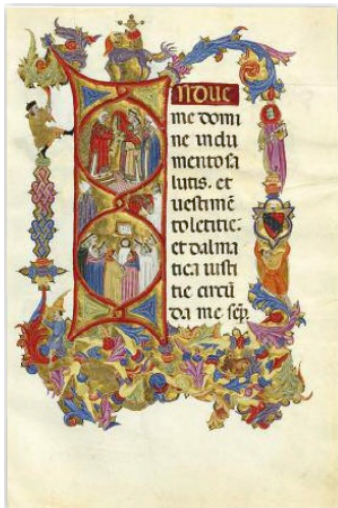 Indue
me domi
ne indu
mento sa
lutis. et
uestimē
to letitie:
et dalma
tica iusti
tie circū
da me sēp.